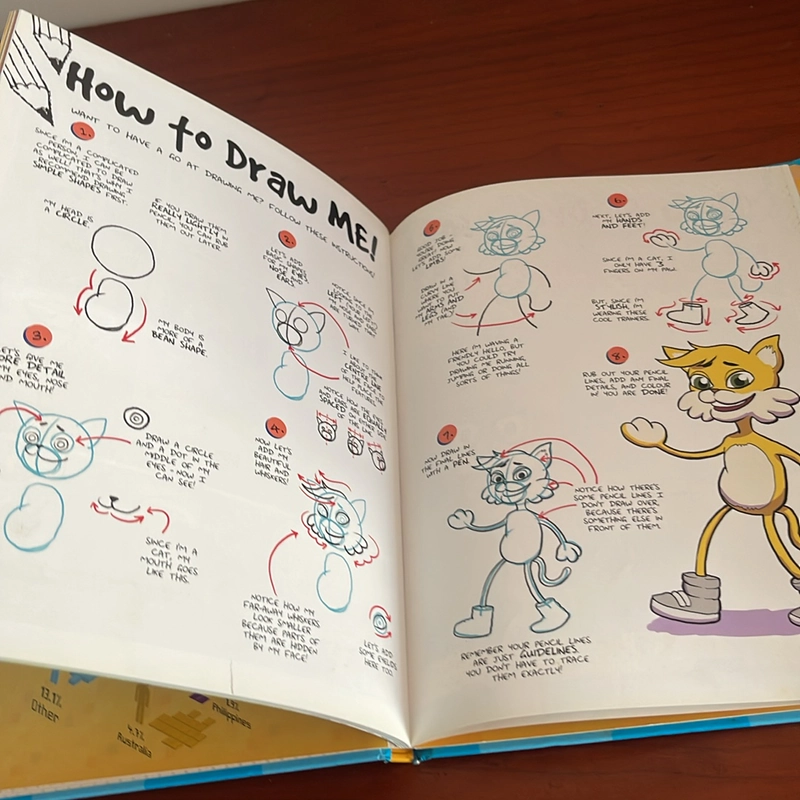 How to Draw ME!
WANT TO HAVE A GO AT DRAWING ME? FOLLOW THESE INSTRUCTIONS!
1.
SINCE I'M A COMPLICATED
PERSON, I CAN BE
COMPLICATED TO DRAW
AS WELL! THAT'S WHY I
RECOMMEND DRAWING
SIMPLE SHAPES FIRST.
MY HEAD IS
A CIRCLE.
IF YOU DRAW THEM
REALLY LIGHTLY IN
PENCIL, YOU CAN RUB
THEM OUT LATER.
MY BODY IS
MORE OF A
BEAN SHAPE.
2.
LET'S ADD
BASIC SHAPES
FOR MY EYES,
NOSE AND
EARS.
NOTICE HOW MY EYES
AND EARS ARE EQUALLY
SPACED ON EITHER SIDE
3.
LET'S GIVE ME
MORE DETAIL
MY EYES, NOSE
AND MOUTH!
DRAW A CIRCLE
AND A DOT IN THE
MIDDLE OF MY
EYES - NOW I
CAN SEE!
SINCE I'M A
CAT, MY
MOUTH GOES
LIKE THIS.
4.
NOW LET'S
ADD MY
BEAUTIFUL
HAIR AND
WHISKERS!
NOTICE HOW MY
FAR-AWAY WHISKERS
LOOK SMALLER
BECAUSE PARTS OF
THEM ARE HIDDEN
BY MY FACE!
LET'S ADD
SOME EYELIDS
HERE TOO!
5.
GOOD JOB -
YOU'RE DOING
GREAT! NOW
LET'S ADD SOME
LIMBS!
DRAW IN A
CURVY LINE
WHERE YOU
WANT TO PUT
ARMS AND
LEGS (AND
MY TAIL!)
HERE I'M WAVING A
FRIENDLY HELLO, BUT
YOU COULD TRY
DRAWING ME RUNNING,
JUMPING OR DOING ALL
SORTS OF THINGS!
6.
NEXT, LET'S ADD
MY HANDS
AND FEET!
SINCE I'M A CAT, I
ONLY HAVE 3
FINGERS ON MY PAW.
BUT, SINCE I'M
STYLISH, I'M
WEARING THESE
COOL TRAINERS.
7.
NOW DRAW IN
THE FINAL LINES
WITH A PEN.
NOTICE HOW THERE'S
SOME PENCIL LINES I
DON'T DRAW OVER,
BECAUSE THERE'S
SOMETHING ELSE IN
FRONT OF THEM.
REMEMBER YOUR PENCIL LINES
ARE JUST GUIDELINES.
YOU DON'T HAVE TO TRACE
THEM EXACTLY!
8.
RUB OUT YOUR PENCIL
LINES, ADD ANY FINAL
DETAILS, AND COLOUR
IN! YOU ARE DONE!
13.1%
Other
4.7%
Australia
Philippines